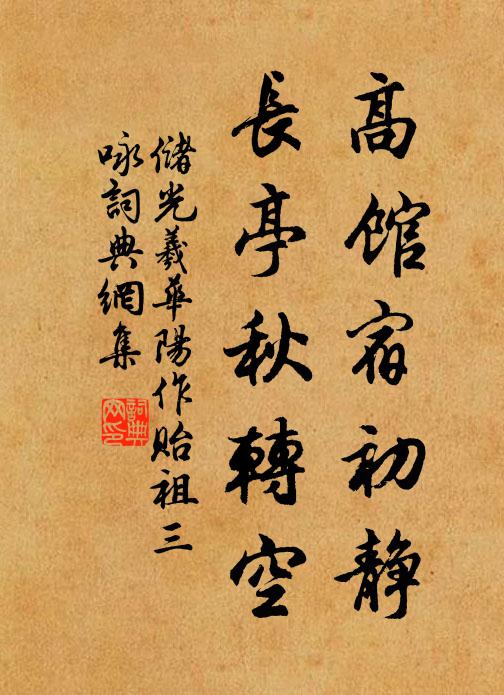 高館宿初静
長亭秋轉空
儲光羲華陽作貽祖三
咏詞典網集
詞典
网印